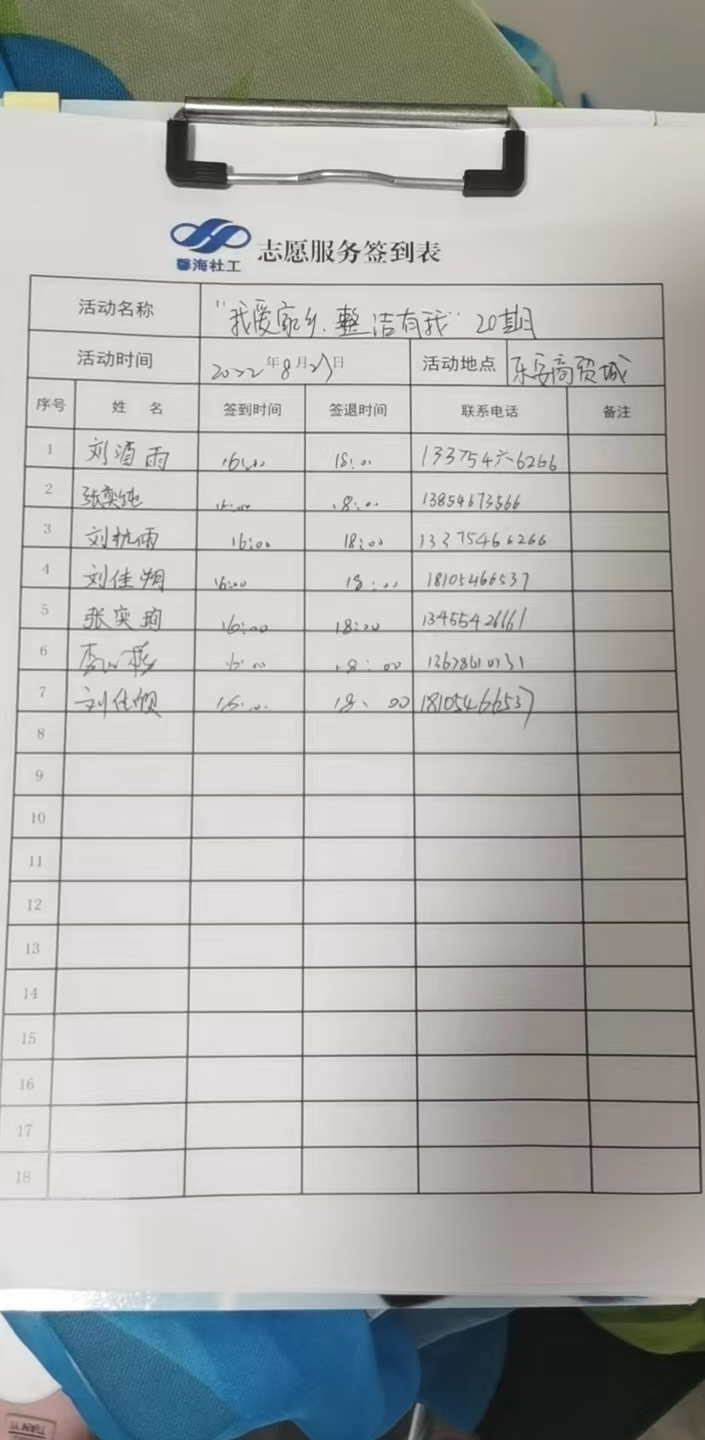 馨海社工 志愿服务签到表
活动名称 "我爱家乡.整洁有我" 20期
活动时间 2022年8月27日 活动地点 东安商贸城
序号 姓 名 签到时间 签退时间 联系电话 备注
1 刘酒雨 16:00 18:00 1337546六6266
2 张奕纯 16:00 18:00 13854673566
3 刘杭雨 16:00 18:00 13375466266
4 刘佳朔 16:00 18:00 18105466537
5 张奕珣 16:00 18:00 13455426161
6 16:00 18:00
7 刘佳硕 16:00 18:00 18105466537
8
9
10
11
12
13
14
15
16
17
18